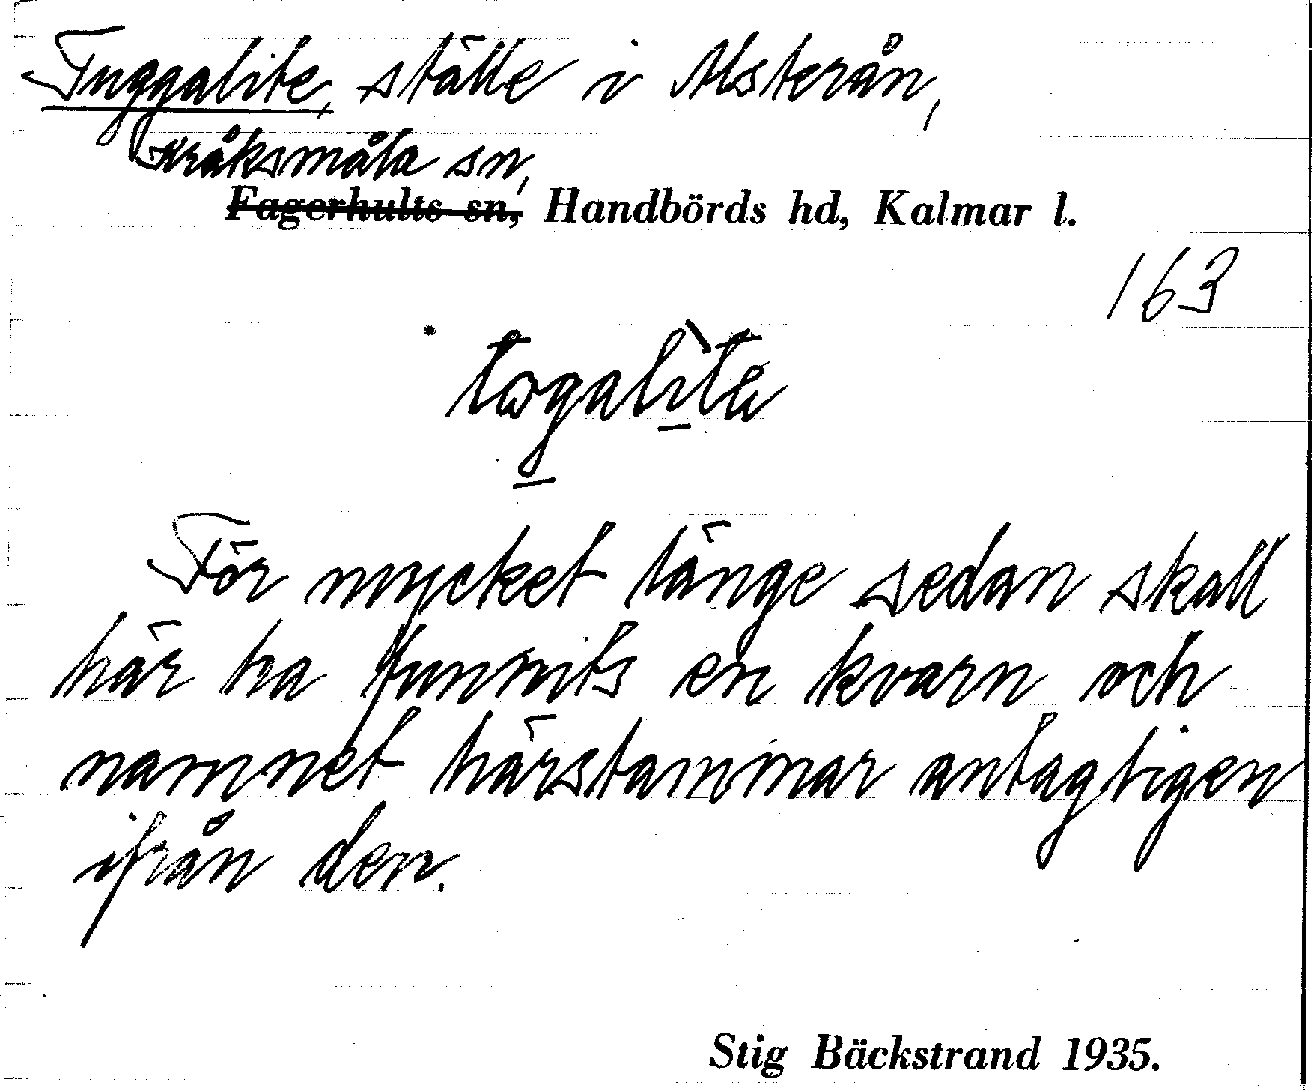 Tuggalite, ställe i Alsterån,
Kråksmåla sn,
Fagerhults sn, Handbörds hd, Kalmar l.
163
För mycket länge sedan skall
här ha funnits en kvarn och
namnet härstammar antagligen
ifrån den.
Stig Bäckstrand 1935.